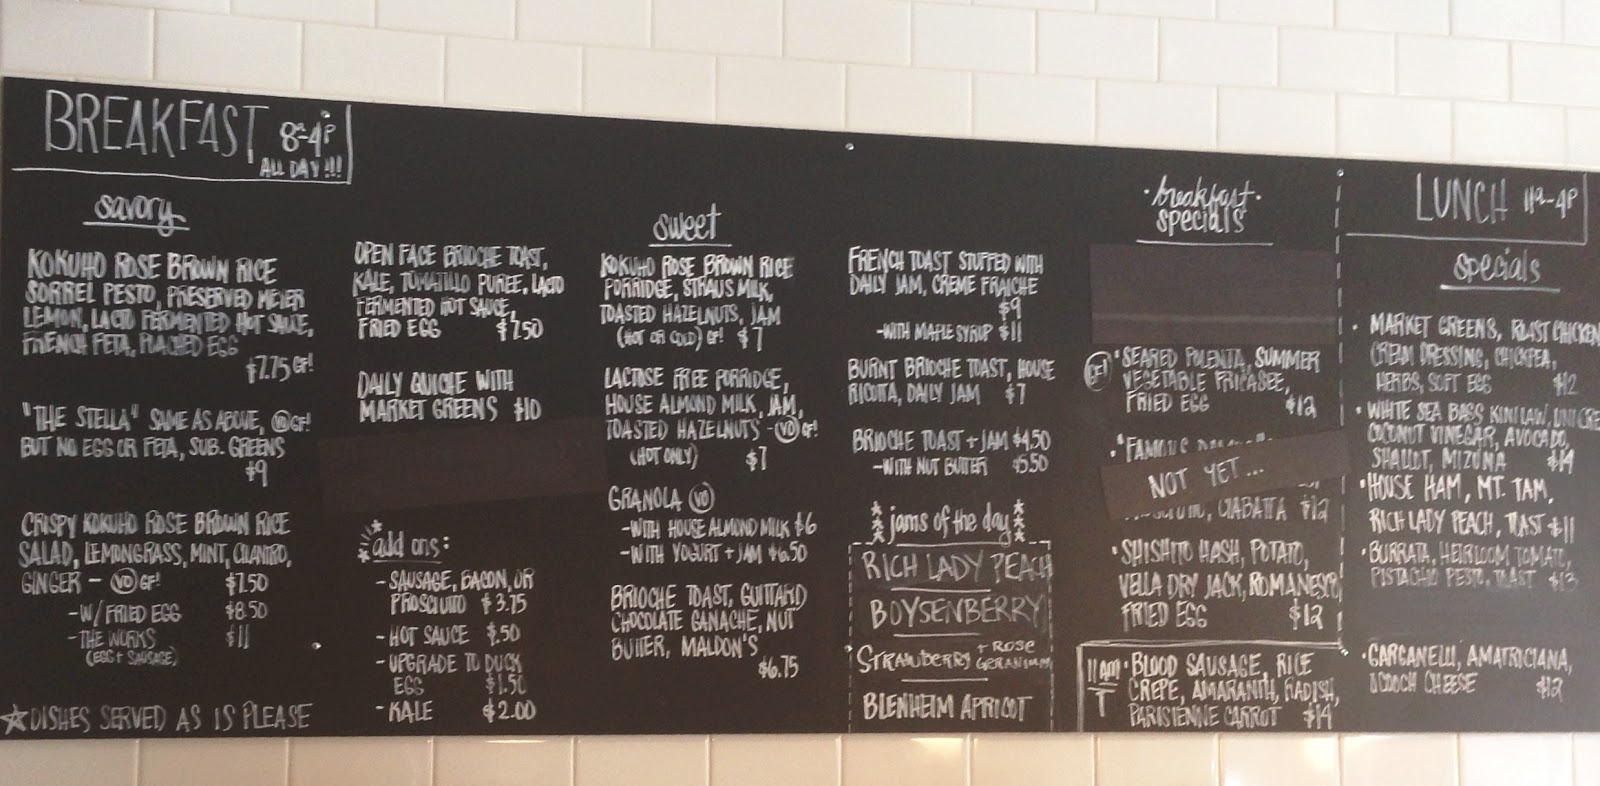 BREAKFAST 8A-4P
ALL DAY!!!
savory
KOKUHO ROSE BROWN RICE
SORREL PESTO, PRESERVED MEIER
LEMON, LACTO FERMENTED HOT SAUCE,
FRENCH FETA, POACHED EGG
$7.75 GF!
"THE STELLA" SAME AS ABOVE, VO GF!
BUT NO EGG OR FETA, SUB. GREENS
$9
CRISPY KOKUHO ROSE BROWN RICE
SALAD, LEMONGRASS, MINT, CILANTRO,
GINGER - VO GF! $7.50
-W/ FRIED EGG $8.50
-THE WORKS $11
(EGG + SAUSAGE)
☆DISHES SERVED AS IS PLEASE
OPEN FACE BRIOCHE TOAST,
KALE, TOMATILLO PUREE, LACTO
FERMENTED HOT SAUCE,
FRIED EGG $7.50
DAILY QUICHE WITH
MARKET GREENS $10
add ons:
- SAUSAGE, BACON, OR
PROSCIUTTO $3.75
- HOT SAUCE $.50
- UPGRADE TO DUCK
EGG $1.50
- KALE $2.00
sweet
KOKUHO ROSE BROWN RICE
PORRIDGE, STRAUS MILK,
TOASTED HAZELNUTS, JAM
(HOT OR COLD) GF! $7
LACTOSE FREE PORRIDGE,
HOUSE ALMOND MILK, JAM,
TOASTED HAZELNUTS - VO GF!
(HOT ONLY) $7
GRANOLA VO
-WITH HOUSE ALMOND MILK $6
-WITH YOGURT + JAM $6.50
BRIOCHE TOAST, GUITTARD
CHOCOLATE GANACHE, NUT
BUTTER, MALDON'S
$6.75
FRENCH TOAST STUFFED WITH
DAILY JAM, CREME FRAICHE
$9
-WITH MAPLE SYRUP $11
BURNT BRIOCHE TOAST, HOUSE
RICOTTA, DAILY JAM $7
BRIOCHE TOAST + JAM $4.50
-WITH NUT BUTTER $5.50
jams of the day
RICH LADY PEACH
BOYSENBERRY
STRAWBERRY + ROSE
GERANIUM
BLENHEIM APRICOT
·breakfast·
specials
GF! · SEARED POLENTA, SUMMER
VEGETABLE FRICASEE,
FRIED EGG $12
· "FAMOUS
NOT YET...
CIABATTA $12
· SHISHITO HASH, POTATO,
VELLA DRY JACK, ROMANESCO,
FRIED EGG $12
11am · BLOOD SAUSAGE, RICE
CREPE, AMARANTH, RADISH,
PARISIENNE CARROT $14
LUNCH 11A-4P
specials
· MARKET GREENS, ROAST CHICKEN
CREAM DRESSING, CHICKPEA,
HERBS, SOFT EGG $12
· WHITE SEA BASS KINILAW, UNI CRE
COCONUT VINEGAR, AVOCADO,
SHALLOT, MIZUNA $14
· HOUSE HAM, MT. TAM,
RICH LADY PEACH, TOAST $11
· BURRATA, HEIRLOOM TOMATO,
PISTACHIO PESTO, TOAST $13
· GARGANELLI, AMATRICIANA,
SCOOCH CHEESE $12